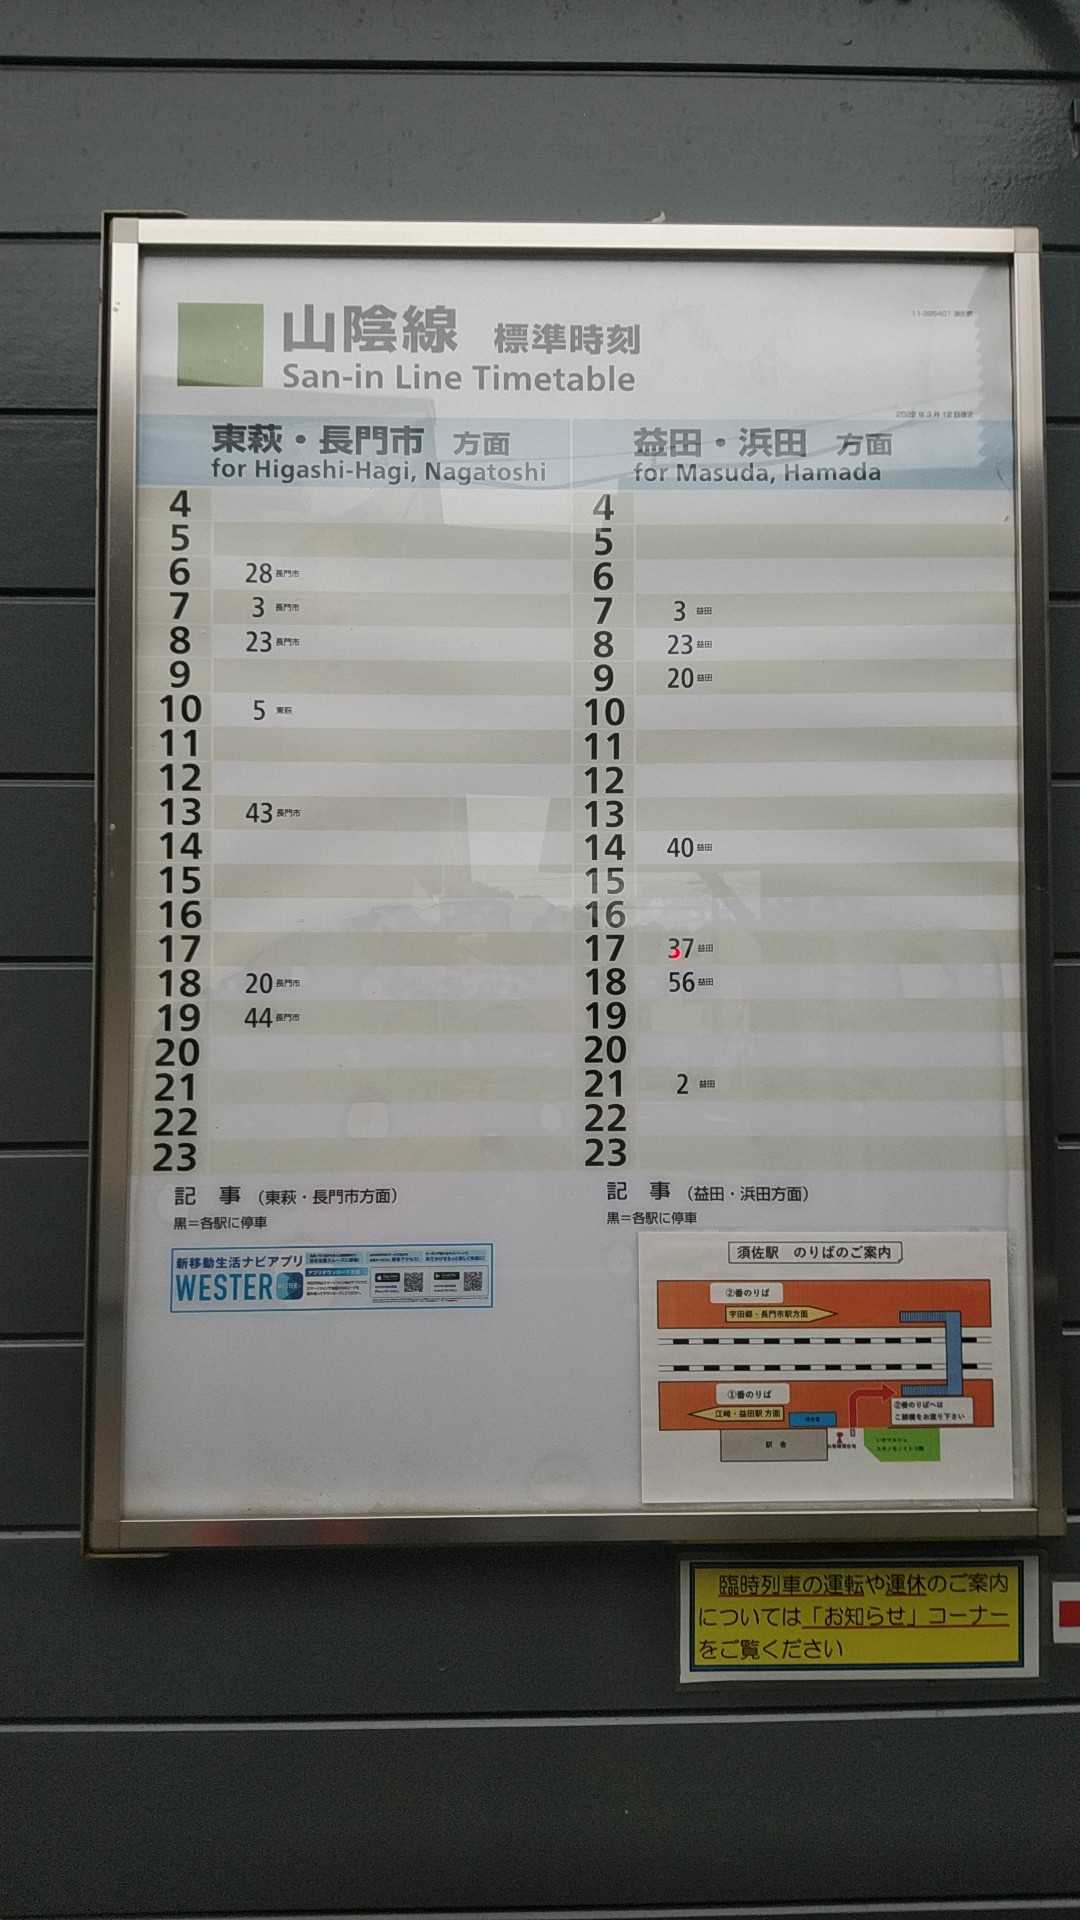 山陰線 標準時刻
San-in Line Timetable
2022年3月12日改正
東萩・長門市 方面
for Higashi-Hagi, Nagatoshi
4
5
6 28長門市
7 3長門市
8 23長門市
9
10 5東萩
11
12
13 43長門市
14
15
16
17
18 20長門市
19 44長門市
20
21
22
23
記 事 （東萩・長門市方面）
黒＝各駅に停車
益田・浜田 方面
for Masuda, Hamada
4
5
6
7 3益田
8 23益田
9 20益田
10
11
12
13
14 40益田
15
16
17 37益田
18 56益田
19
20
21 2益田
22
23
記 事 （益田・浜田方面）
黒＝各駅に停車
新移動生活ナビアプリ
WESTER
須佐駅 のりばのご案内
②番のりば
宇田郷・長門市駅方面
①番のりば
江崎・益田駅方面
②番のりばへは
こ線橋をお渡り下さい
駅舎
臨時列車の運転や運休のご案内
については「お知らせ」コーナー
をご覧ください